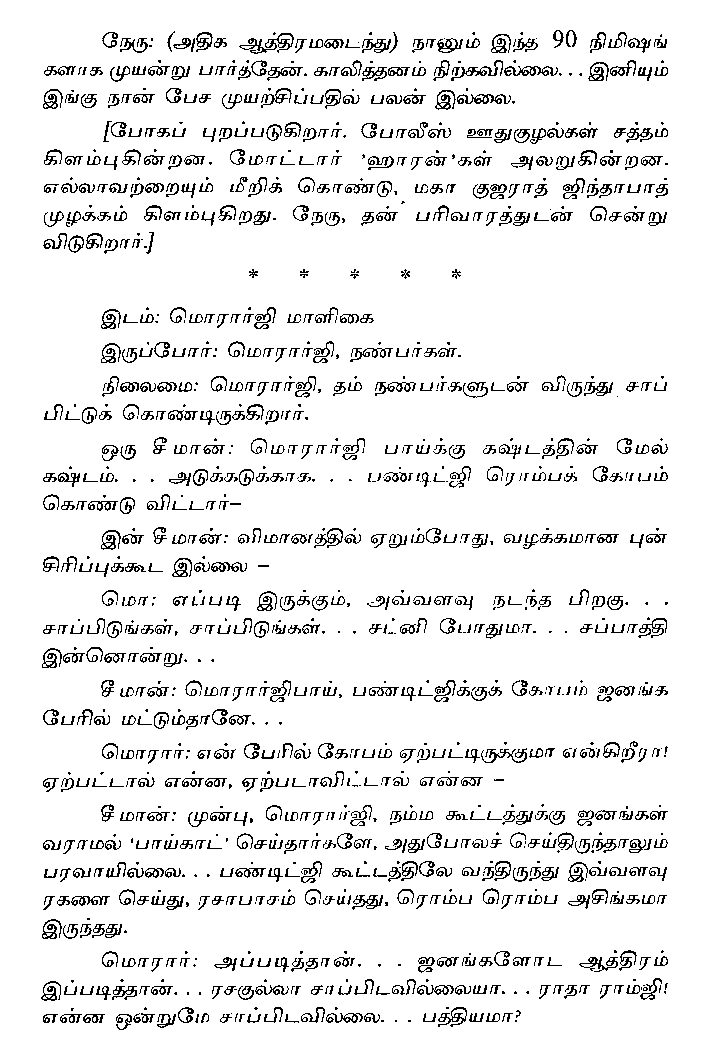 நேரு: (அதிக ஆத்திரமடைந்து) நானும் இந்த 90 நிமிஷங்
களாக முயன்று பார்த்தேன். காலித்தனம் நிற்கவில்லை. . . இனியும்
இங்கு நான் பேச முயற்சிப்பதில் பலன் இல்லை.
[போகப் புறப்படுகிறார். போலீஸ் ஊதுகுழல்கள் சத்தம்
கிளம்புகின்றன. மோட்டார் 'ஹாரன்'கள் அலறுகின்றன.
எல்லாவற்றையும் மீறிக் கொண்டு, மகா குஜராத் ஜிந்தாபாத்
முழக்கம் கிளம்புகிறது. நேரு, தன் பரிவாரத்துடன் சென்று
விடுகிறார்.]
* * * * *
இடம்: மொரார்ஜி மாளிகை
இருப்போர்: மொரார்ஜி, நண்பர்கள்.
நிலைமை: மொரார்ஜி, தம் நண்பர்களுடன் விருந்து சாப்
பிட்டுக் கொண்டிருக்கிறார்.
ஒரு சீமான்: மொரார்ஜி பாய்க்கு கஷ்டத்தின் மேல்
கஷ்டம். . . அடுக்கடுக்காக. . . பண்டிட்ஜி ரொம்பக் கோபம்
கொண்டு விட்டார்–
இன் சீமான்: விமானத்தில் ஏறும்போது, வழக்கமான புன்
சிரிப்புக்கூட இல்லை –
மொ: எப்படி இருக்கும், அவ்வளவு நடந்த பிறகு. . .
சாப்பிடுங்கள், சாப்பிடுங்கள். . . சட்னி போதுமா. . . சப்பாத்தி
இன்னொன்று. . .
சீமான்: மொரார்ஜிபாய், பண்டிட்ஜிக்குக் கோபம் ஜனங்க
பேரில் மட்டும்தானே. . .
மொரார்: என் பேரில் கோபம் ஏற்பட்டிருக்குமா என்கிறீரா!
ஏற்பட்டால் என்ன, ஏற்படாவிட்டால் என்ன –
சீமான்: முன்பு, மொரார்ஜி, நம்ம கூட்டத்துக்கு ஜனங்கள்
வராமல் 'பாய்காட்' செய்தார்களே, அதுபோலச் செய்திருந்தாலும்
பரவாயில்லை. . . பண்டிட்ஜி கூட்டத்திலே வந்திருந்து இவ்வளவு
ரகளை செய்து, ரசாபாசம் செய்தது, ரொம்ப ரொம்ப அசிங்கமா
இருந்தது.
மொரார்: அப்படித்தான். . . ஜனங்களோட ஆத்திரம்
இப்படித்தான். . . ரசகுல்லா சாப்பிடவில்லையா. . . ராதா ராம்ஜி!
என்ன ஒன்றுமே சாப்பிடவில்லை. . . பத்தியமா?